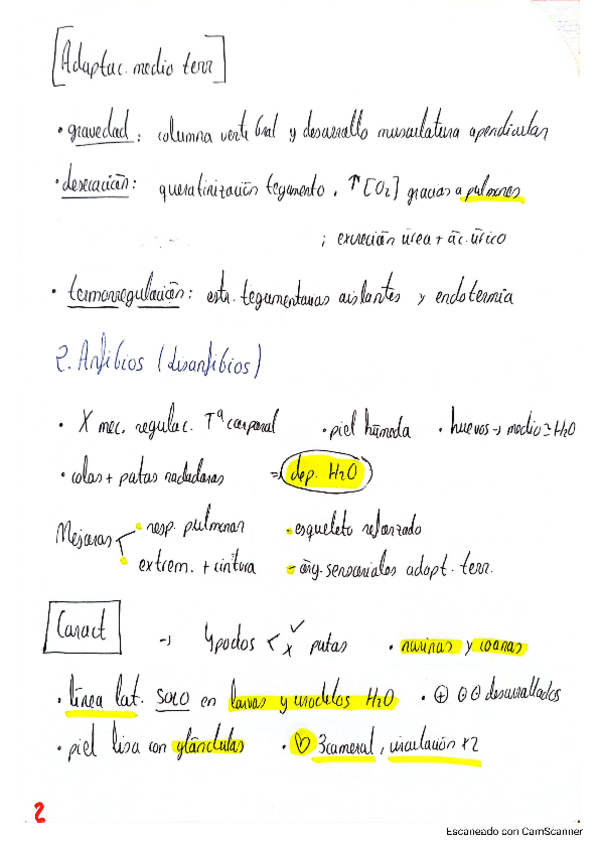 [Adaptac. medio terr]
• gravedad: columna vertebral y desarrollo musculatura apendicular
• desecación: queratinización tegumento, ↑[O2] gracias a pulmones
; excreción úrea + ác. úrico
• termorregulación: estr. tegumentarias aislantes y endotermia
2. Anfibios (lisanfibios)
• X mec. regulac. Tª corporal • piel húmeda • huevos → medio = H2O
• colas + patas nadadoras ⇒ dep. H2O
Mejoras • resp. pulmonar - esqueleto reforzado
• extrem. + cintura - órg. sensoriales adapt. terr.
Caract → 4podos < ✓ x patas • narinas y coanas
• línea lat. SOLO en larvas y urodelos H2O • ⊕ ʘʘ desarrollados
• piel lisa con glándulas • ♡ 3cameral, circulación x2
2
Escaneado con CamScanner